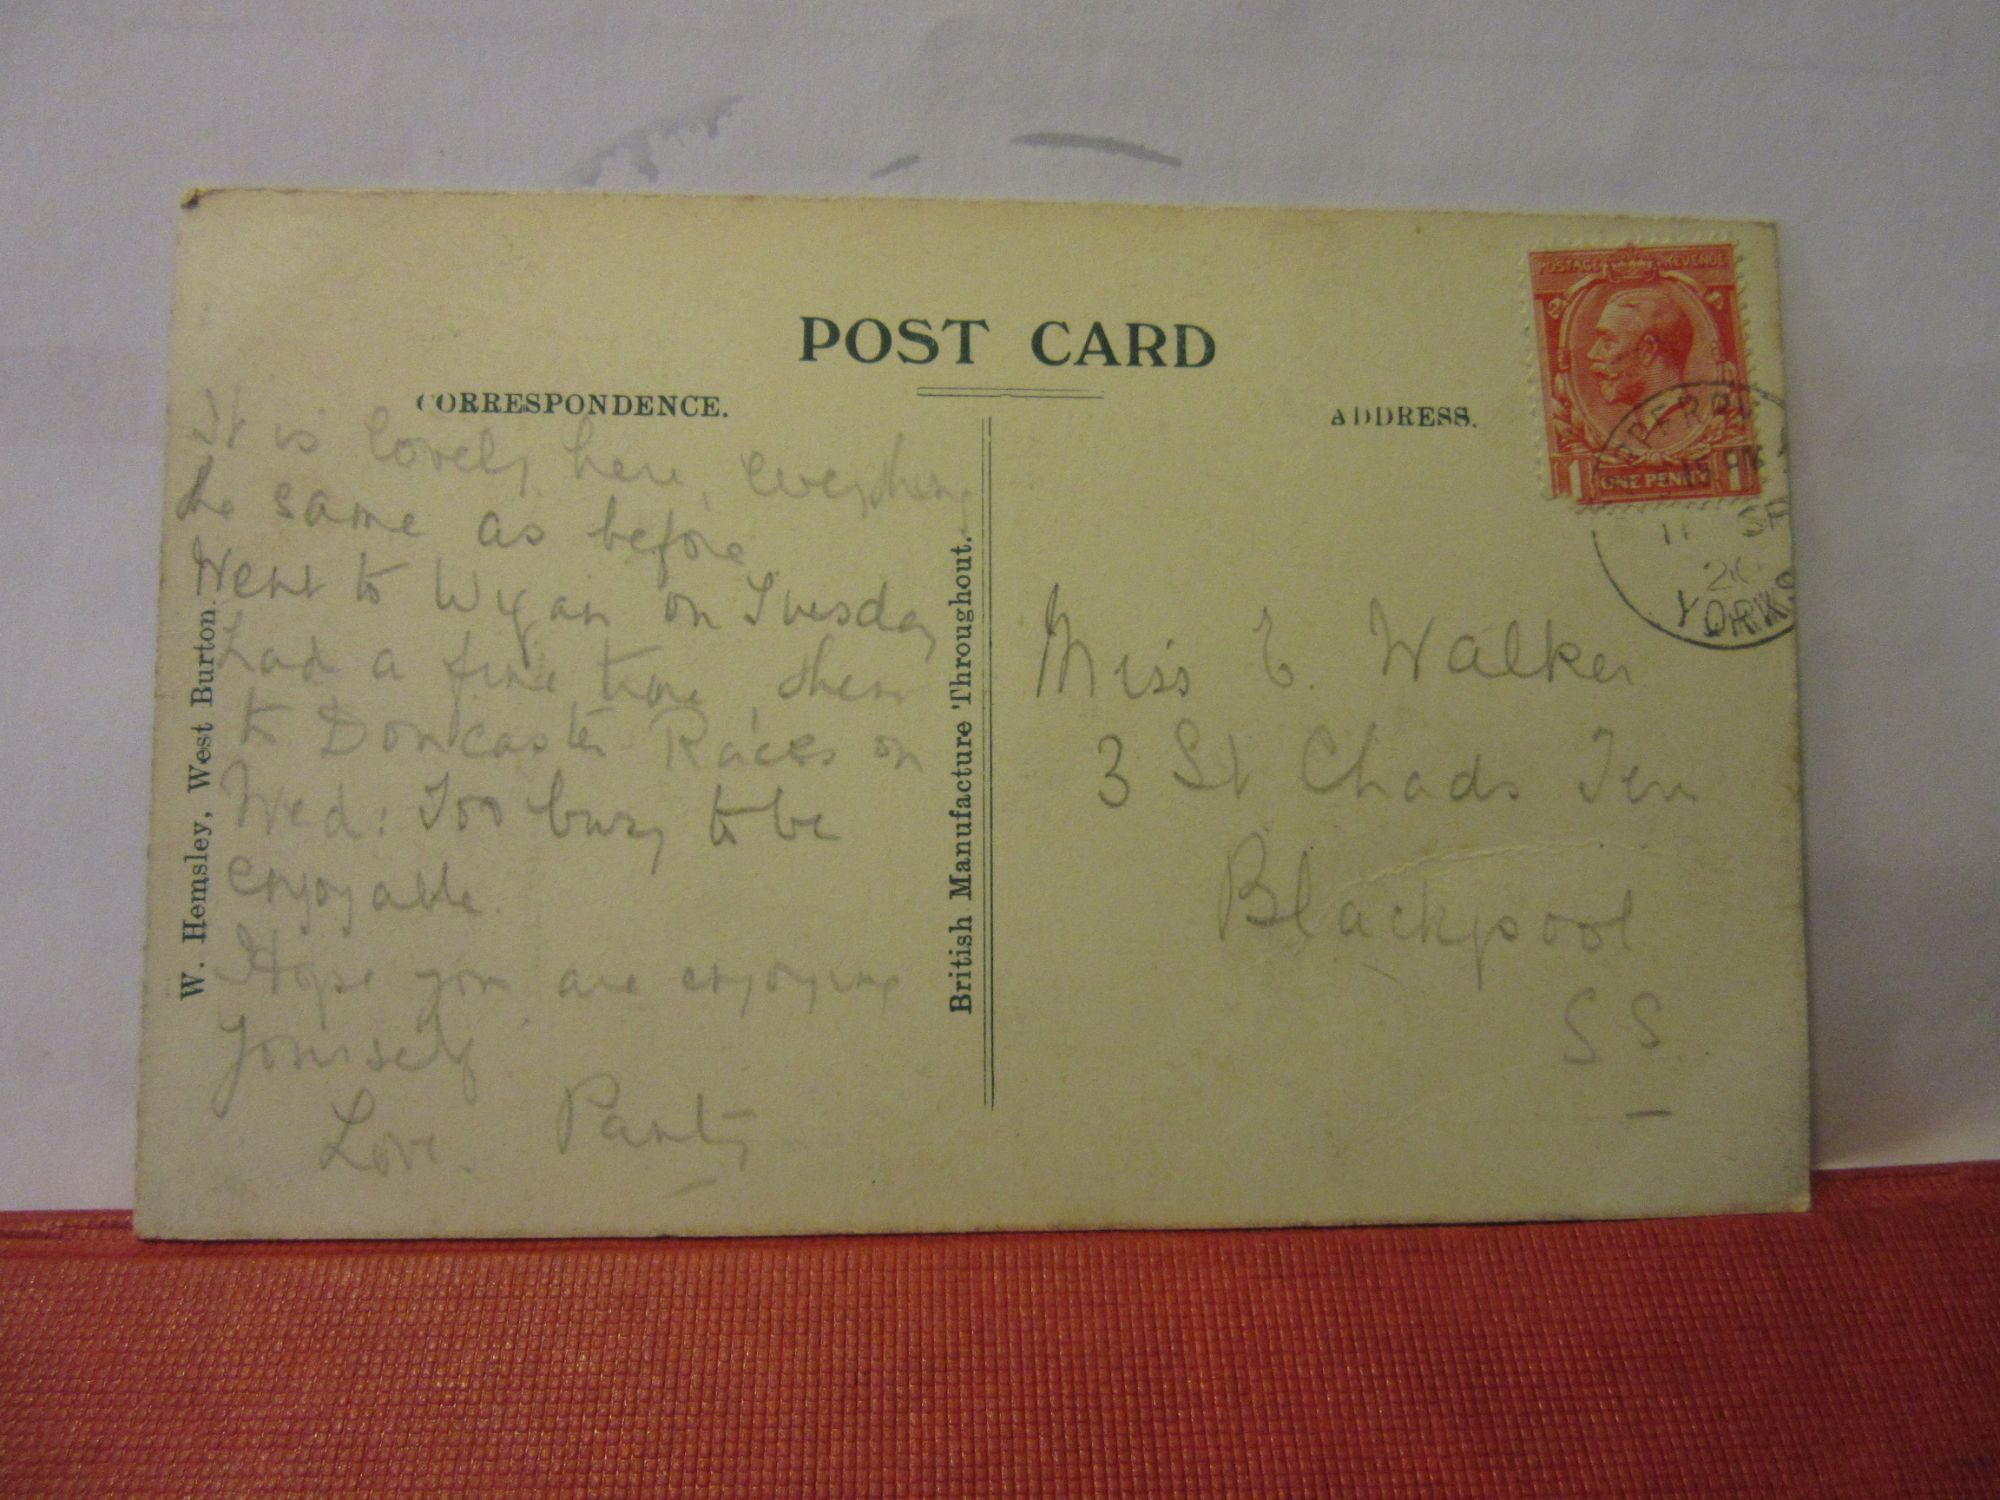 POST CARD
CORRESPONDENCE.
ADDRESS.
It is lovely here, everything
the same as before
Went to Wygan on Tuesday
had a fine time, then
to Doncaster Races on
Wed: Too busy to be
enjoyable.
Hope you are enjoying
yourself
Love.
W. Hemsley, West Burton.
British Manufacture Throughout.
POSTAGE REVENUE
1 ONE PENNY 1
YORKS
Miss E. Walker
3 St Chads Terr
Blackpool
S S